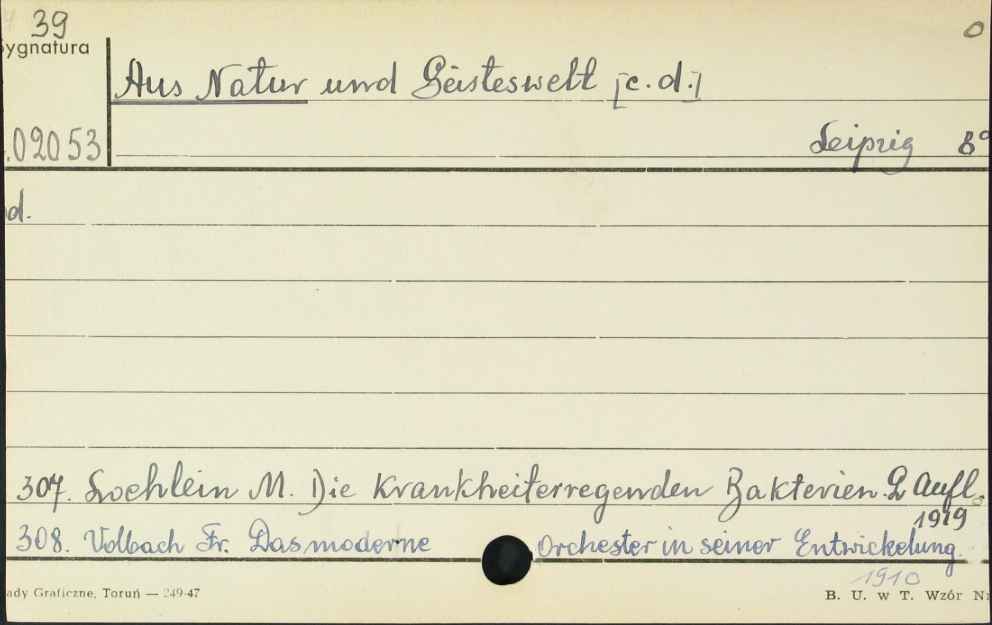 39
ygnatura
Aus Natur und Geisteswelt [c.d.]
.02053
Leipzig 8°
d.
307. Loehlein M. Die Krankheiterregenden Bakterien. 2 Aufl.
1919
308. Volbach Fr. Das moderne Orchester in seiner Entwickelung.
1910
ady Graficzne, Toruń — 249-47
B. U. w T. Wzór N